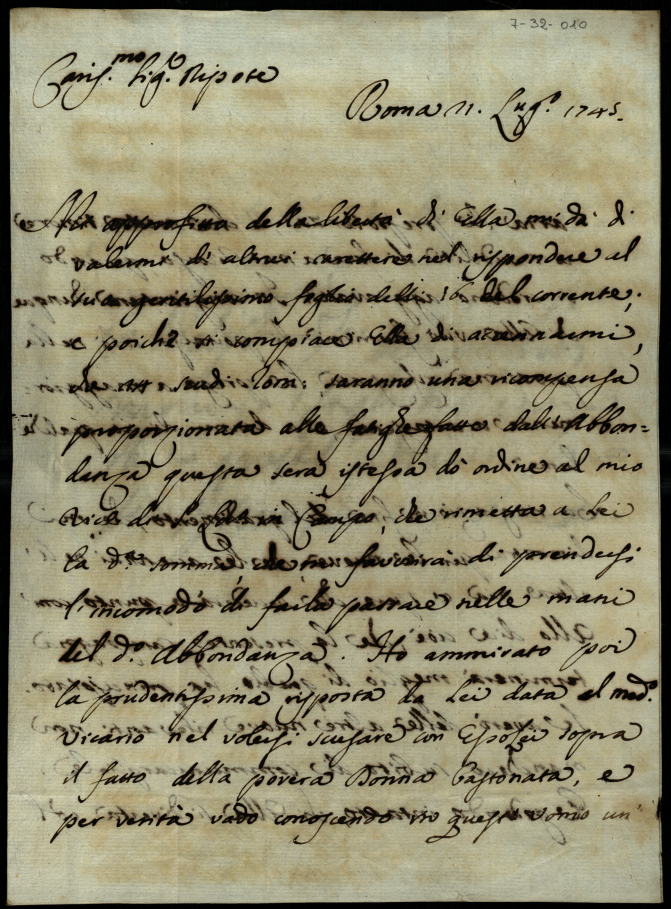 7-32-010
Caris.mo Sig.r Nipote
Roma 11. Lug.o 1745.
Mi approfitto della libertà di Ella mi dà di
valermi di altrui carattere nel rispondere al
suo gentilissimo foglio delli 16 del corrente;
e poichè si compiace Ella di accennarmi,
che scudi saranno una ricompensa
proporzionata alle fatighe fatte dall'Abbon=
danza questa sera istessa dò ordine al mio
di Campo, che rimetta a Lei
la d.a somma, che mi favorirà di prendersi
l'incomodo di farla passare nelle mani
del d.o Abbondanza. Ho ammirato poi
la prudentissima risposta da Lei data al med.o
Vicario nel volersi scusare con Esso Lei sopra
il fatto della povera Donna bastonata, e
per verità vado conoscendo in quest'uomo un